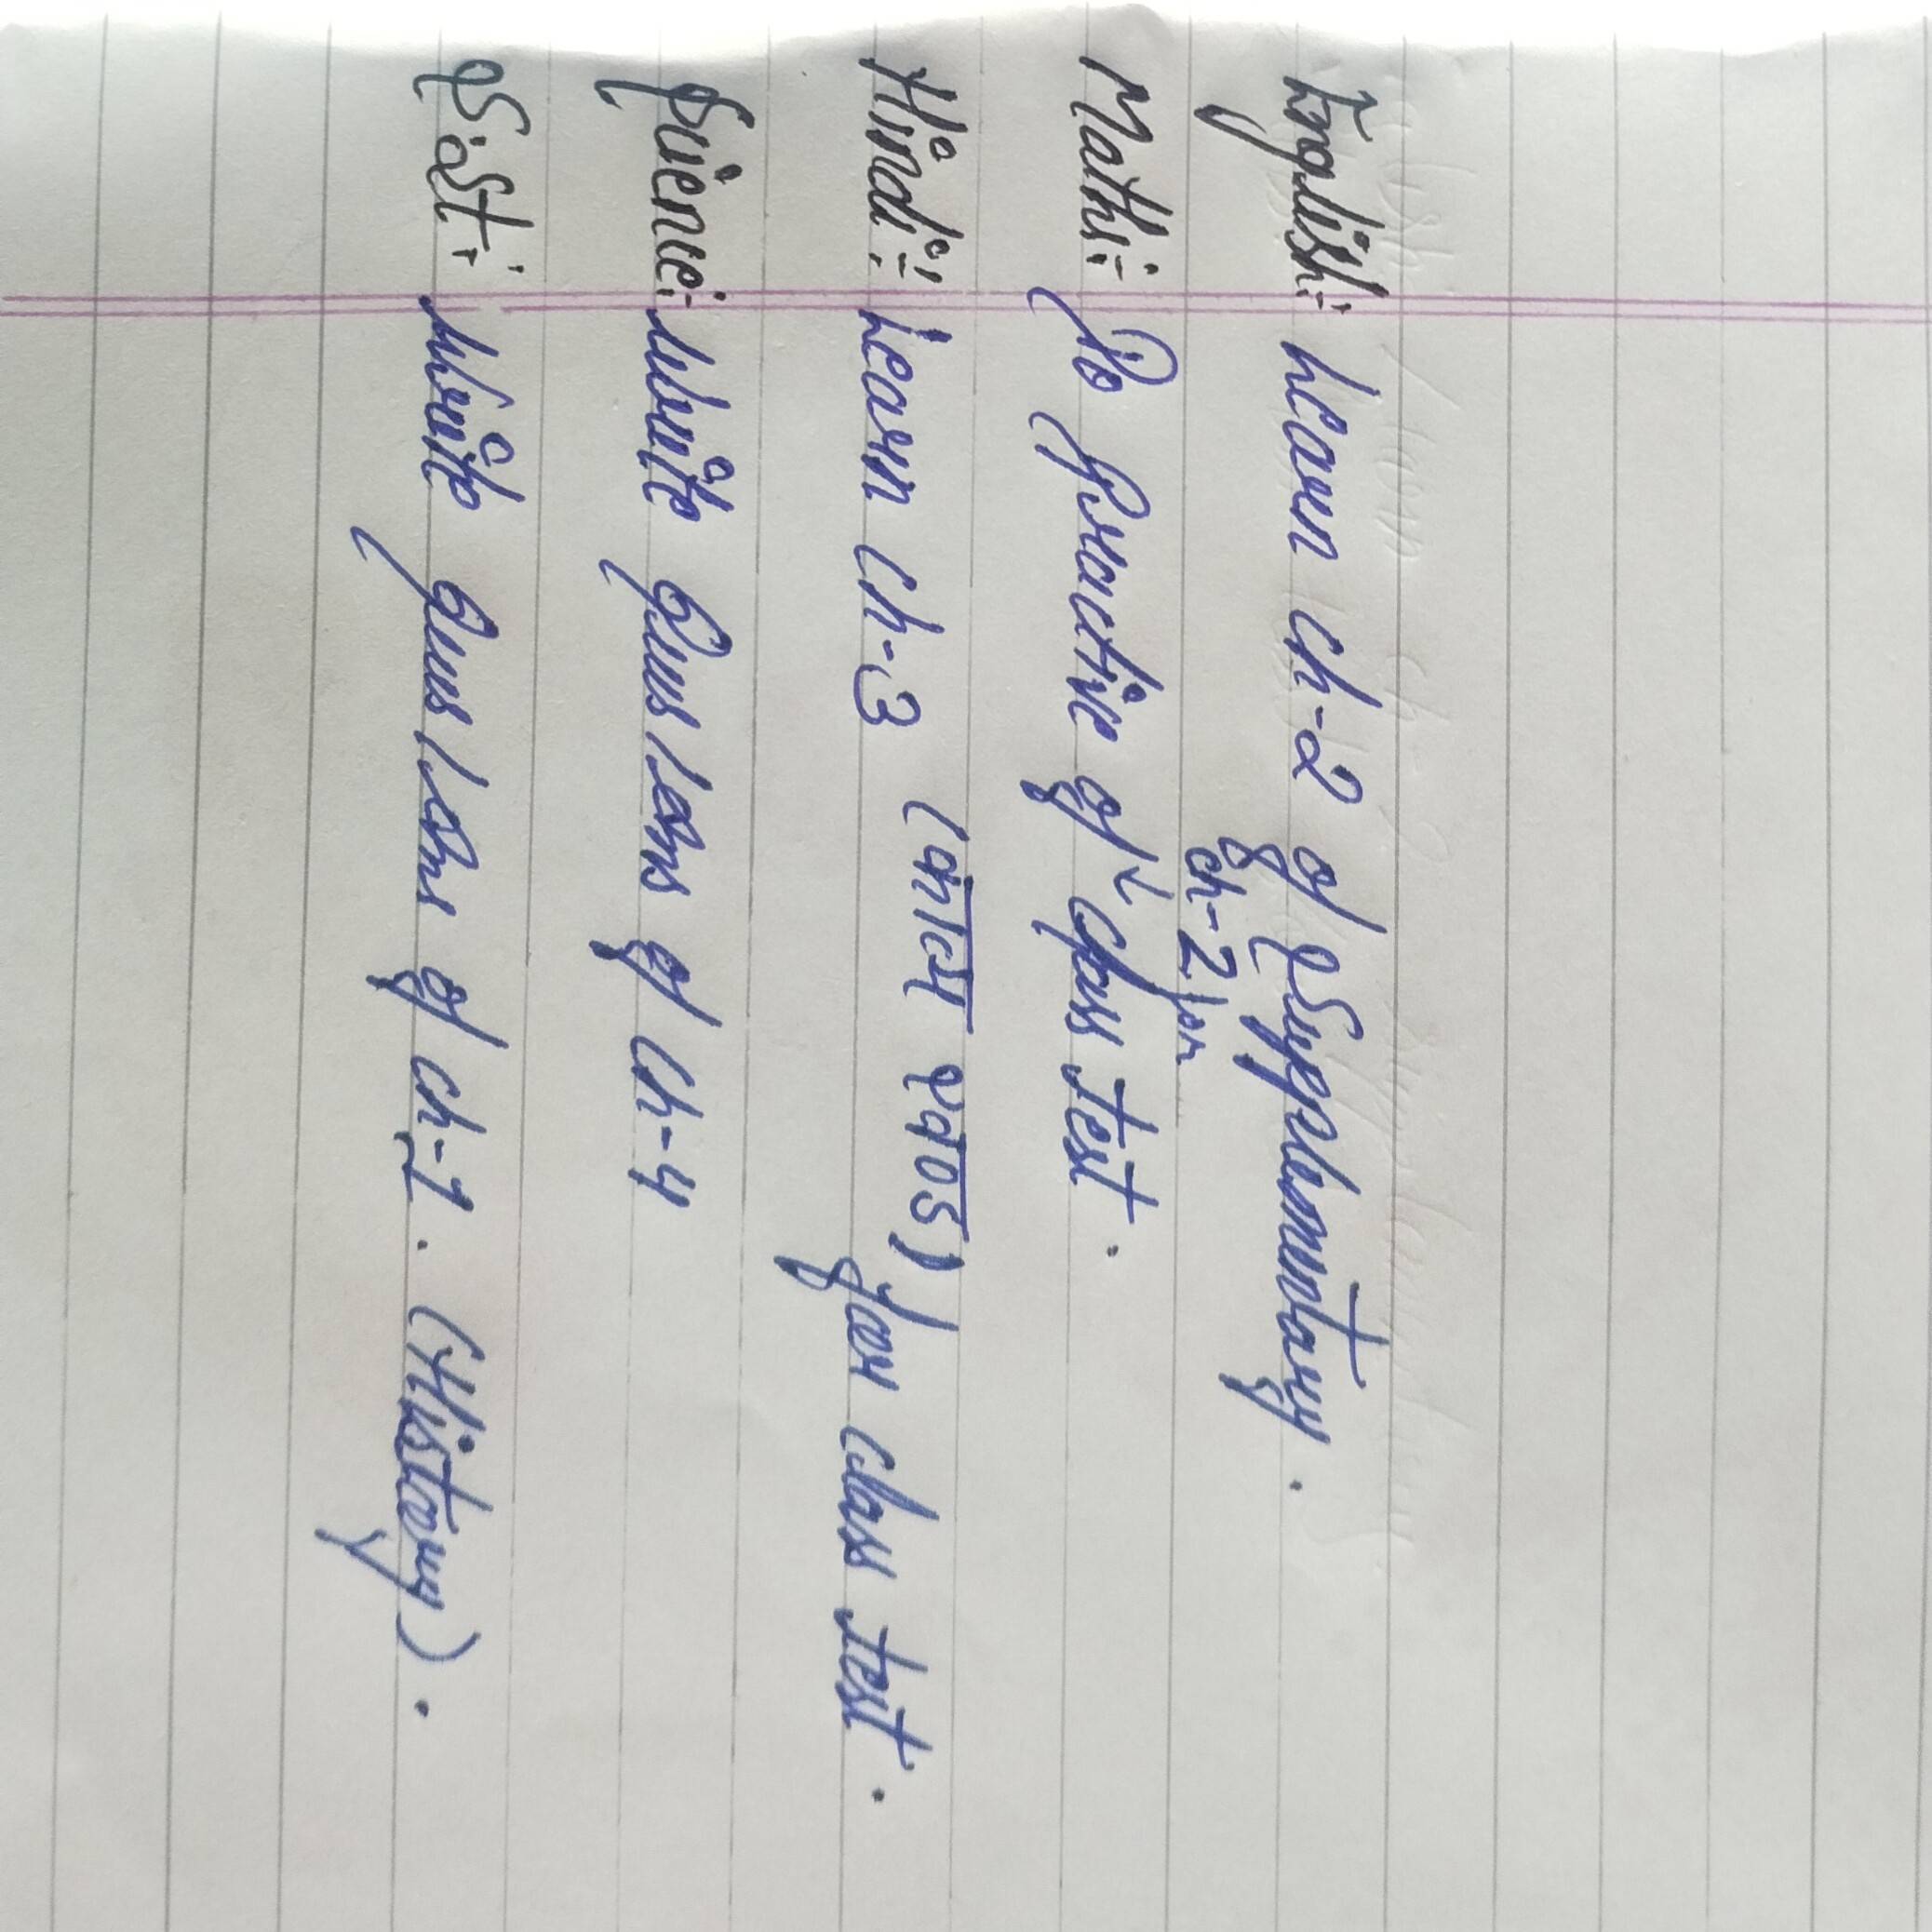 English:- Learn ch-2 of Supplementary.
ch-2 for
Maths:- Do practice of class test.
Hindi:- Learn ch-3 (काला खण्ड) for class test.
Science:- Write Ques/Ans of ch-4
S.St:- Write Ques/Ans of ch-1. (History).